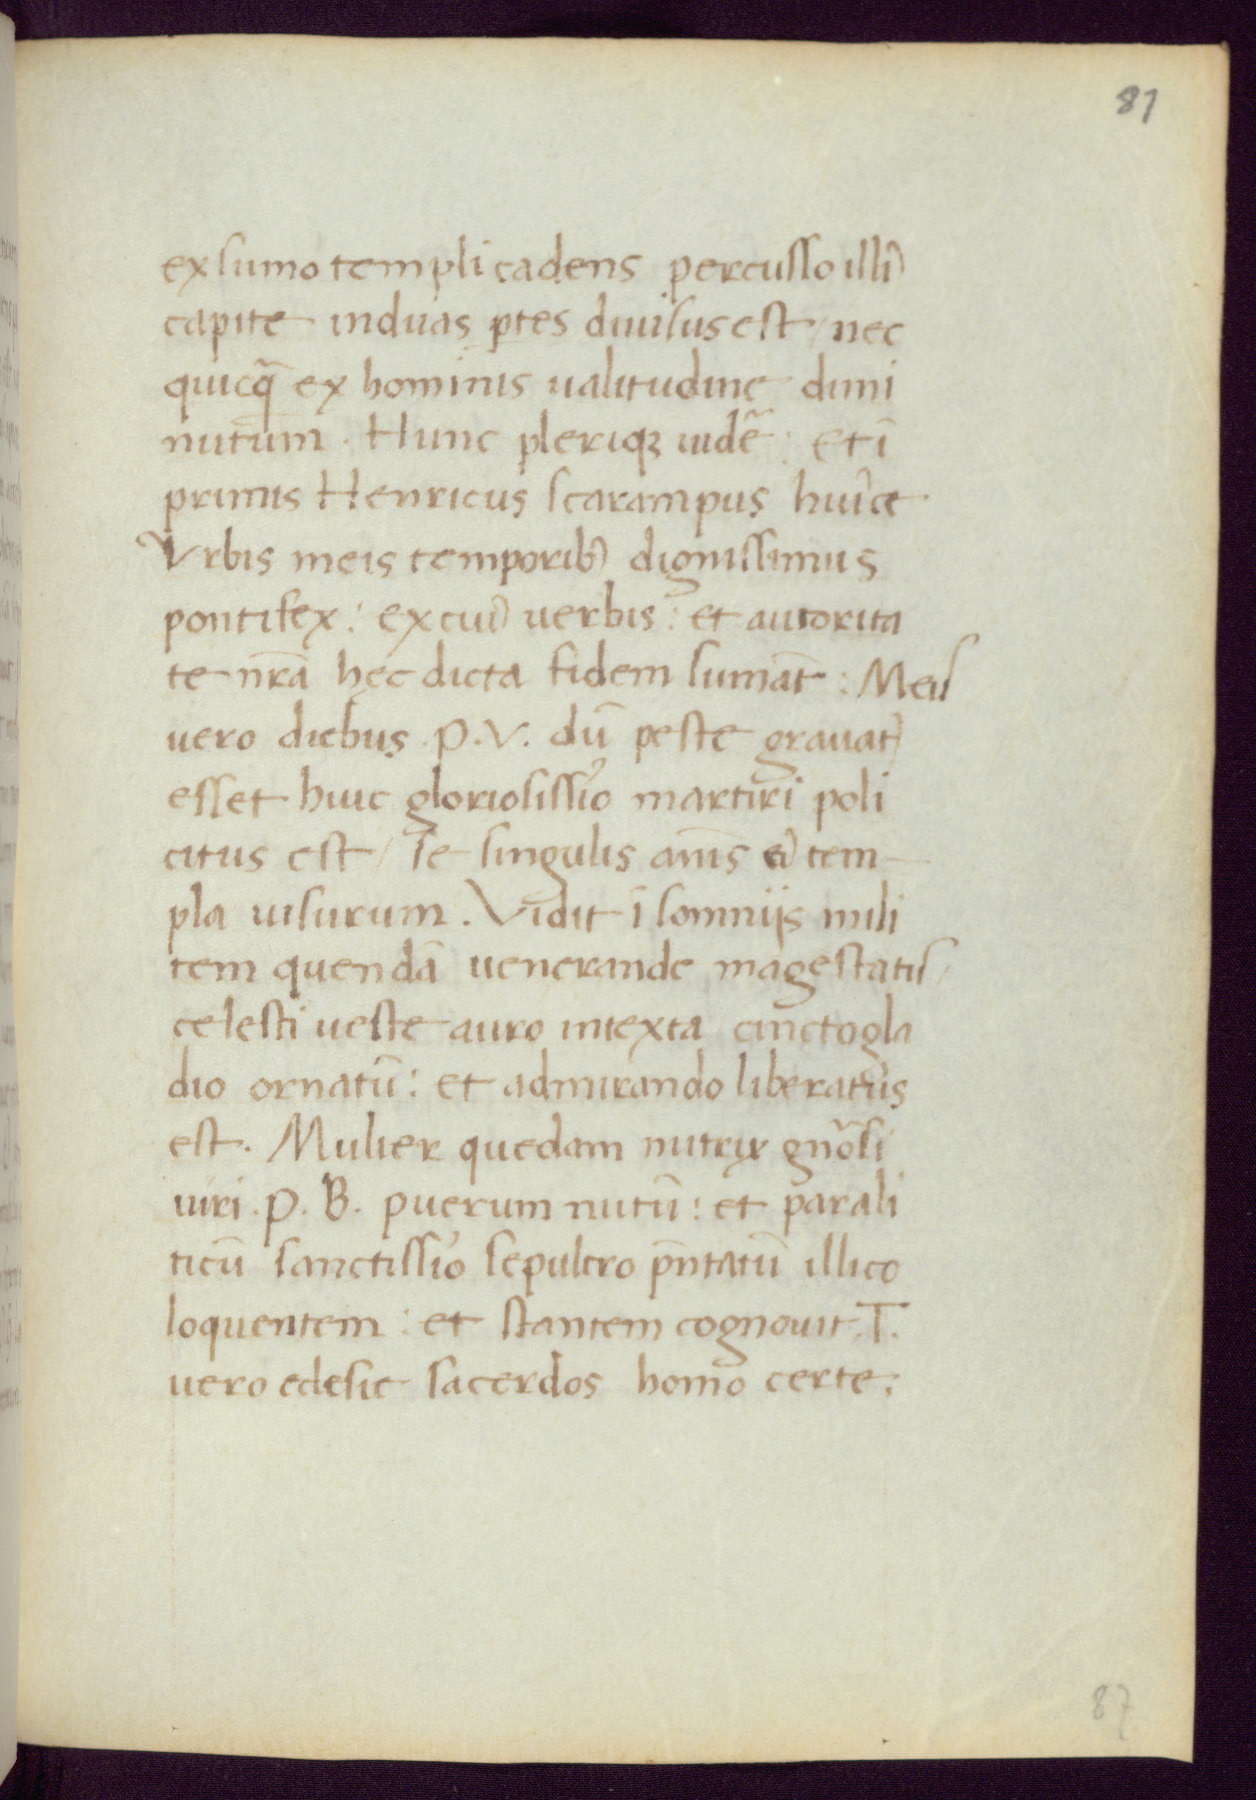 81
ex sumo templi cadens percusso illiꝰ
capite in duas ꝑtes diuisus est / nec
quicq̃ ex hominis ualitudine dimi
nutum . Hunc pleriqꝫ uidẽ : Et ĩ
primis Henricus scarampus huiꝰce
Vrbis meis temporibꝰ dignissimus
pontifex : ex cuiꝰ uerbis : et autorita
te nr̃a hęc dicta fidem sumãt : Meis
uero diebus . P . V . dũ peste grauatꝰ
esset huic gloriosissĩo martiri poli
citus est / se singulis anĩs eiꝰ tem
pla uisurum . Vidit ĩ somniis mili
tem quendã uenerande magestatis /
celesti ueste auro intexta cincto gla
dio ornatũ : et admirando liberatus
est . Mulier quedam nutrix gñosi
uiri . P . B . puerum nutũ : et parali
ticũ sanctissĩo sepulcro pñtatũ illico
loquentem : et stantem cognouit . T .
uero eclesie sacerdos homo certe :
87